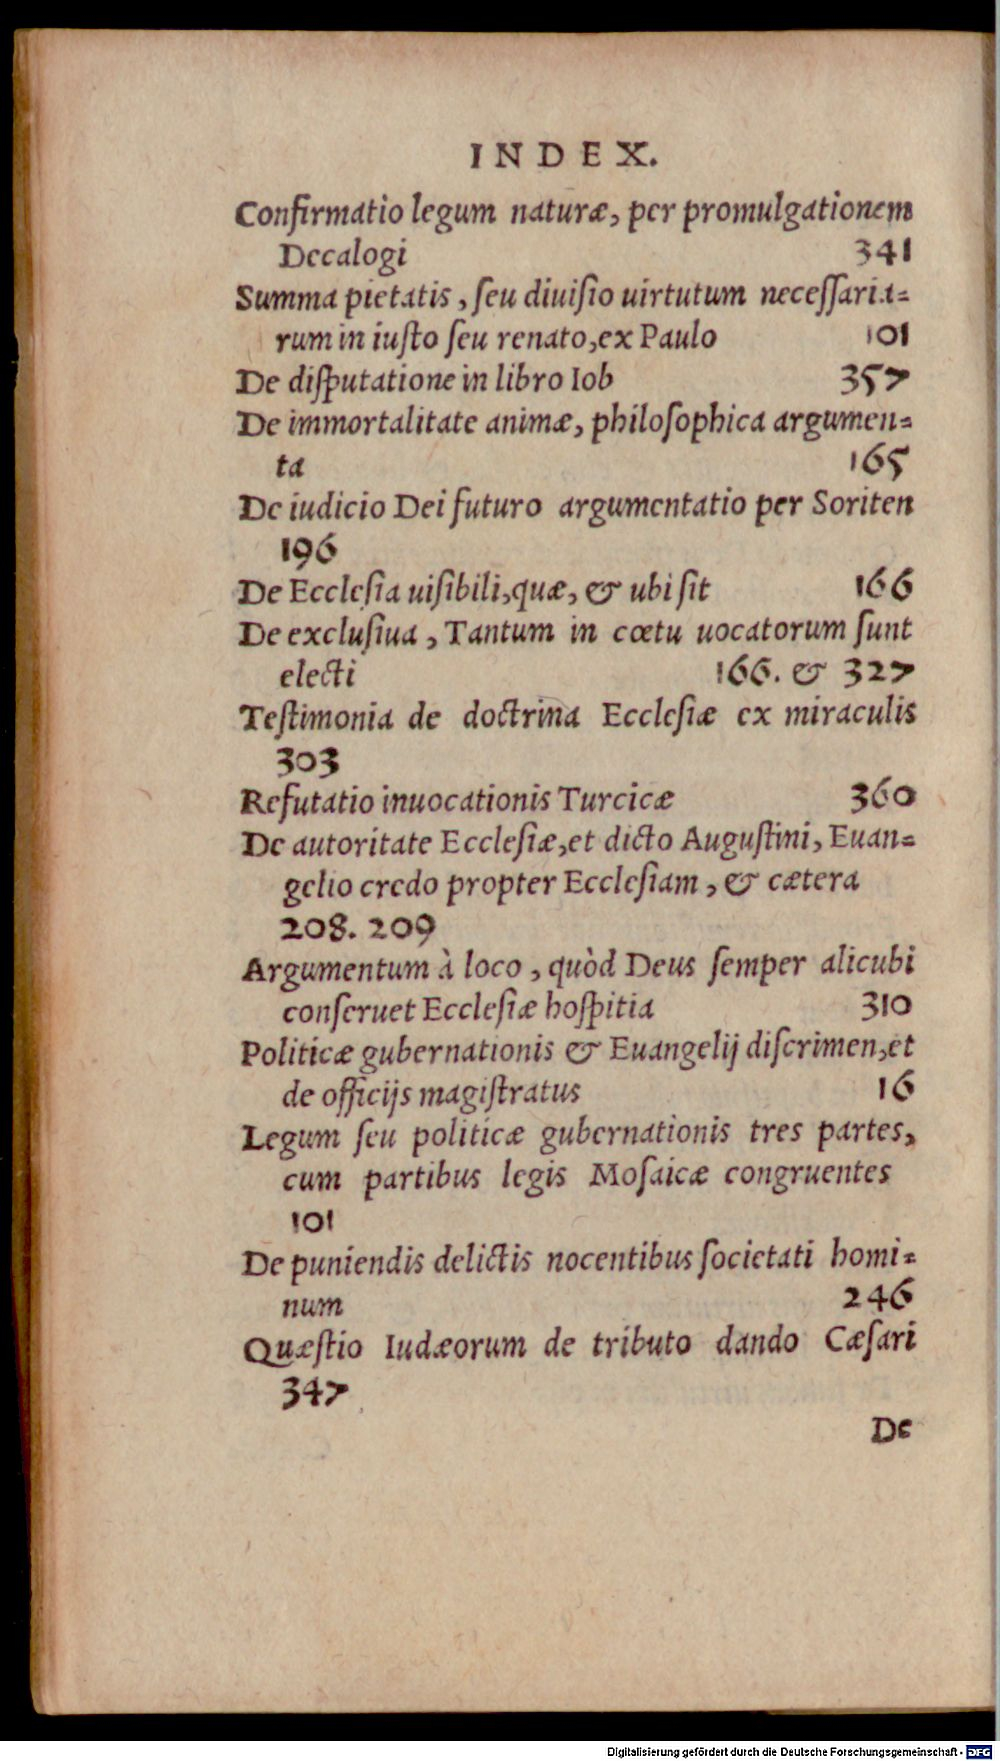 INDEX.
Confirmatio legum naturæ, per promulgationem
Decalogi 341
Summa pietatis, ſeu diuiſio uirtutum neceſſaria-
rum in iuſto ſeu renato, ex Paulo 101
De diſputatione in libro Iob 357
De immortalitate animæ, philoſophica argumen-
ta 165
De iudicio Dei futuro argumentatio per Soriten
196
De Eccleſia uiſibili, quæ, & ubi ſit 166
De excluſiua, Tantum in cœtu uocatorum ſunt
electi 166. & 327
Teſtimonia de doctrina Eccleſiæ ex miraculis
303
Refutatio inuocationis Turcicæ 360
De autoritate Eccleſiæ, et dicto Auguſtini, Euan-
gelio credo propter Eccleſiam, & cætera
208. 209
Argumentum à loco, quòd Deus ſemper alicubi
conſeruet Eccleſiæ hoſpitia 310
Politicæ gubernationis & Euangelij diſcrimen, et
de officijs magiſtratus 16
Legum ſeu politicæ gubernationis tres partes,
cum partibus legis Moſaicæ congruentes
101
De puniendis delictis nocentibus ſocietati homi-
num 246
Quæſtio Iudæorum de tributo dando Cæſari
347
De
Digitalisierung gefördert durch die Deutsche Forschungsgemeinschaft - DFG